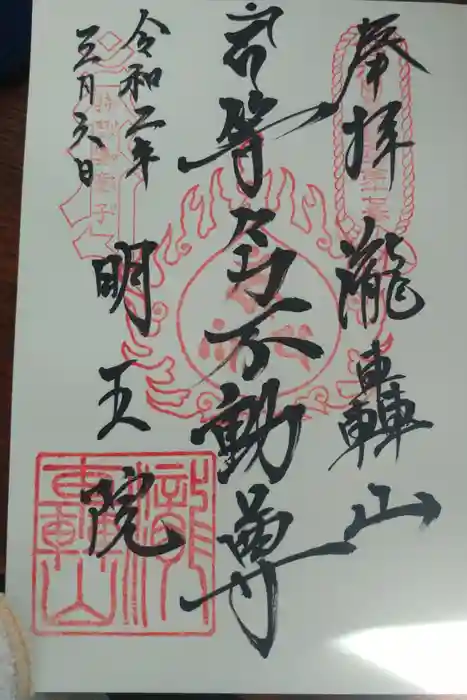 奉拝 瀧轟山
等々力不動尊
明王院
令和二年
三月六日
瀧
轟山